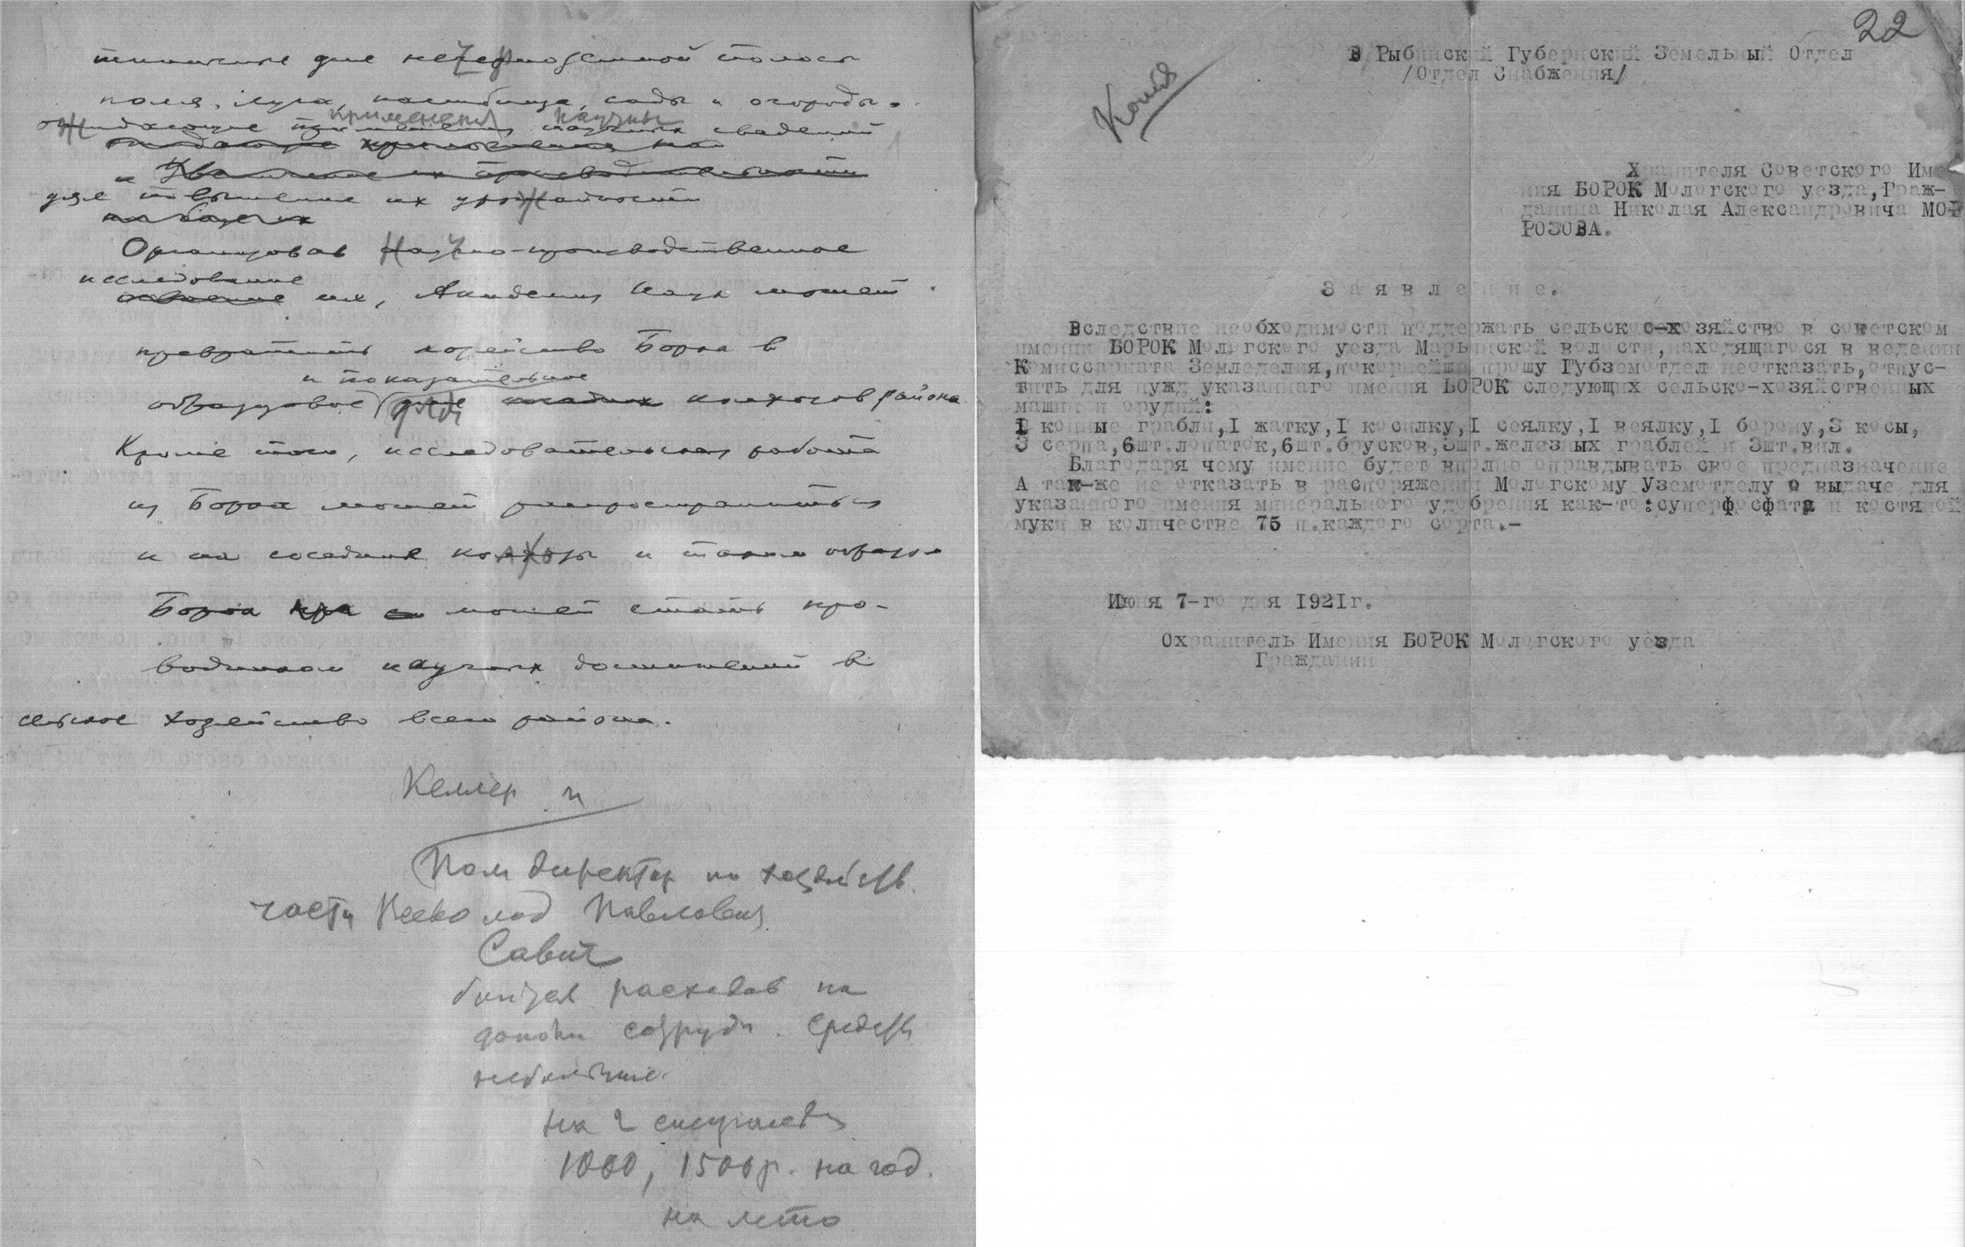 типичные для нечерноземной полосы
поля, луга, пастбища, сады и огороды,
применения научных
ожидающие применения научных сведений
ожидающие приложения на
и
для повышения их урожайности
Организовав Научно-производственное
исследование
их, Академия Наук может
превратить хозяйство Борка в
и показательное
образцовое для колхозов района
Кроме того, исследовательская работа
из Борка может распространиться
и на соседние колхозы и таким образом
Борок может стать про-
водником научных достижений в
сельское хозяйство всего района.
Келлер
Пом директор по хозяйств.
части Всеволод Павлович
Савич
расходов на
сотрудн. средств
небольшие.
на 2
1000, 1500 р. на год.
на лето
22
Копия
В Рыбинский Губернский Земельный Отдел
/Отдел Снабжения/
Хранителя Советского Име-
ния БОРОК Мологского уезда,Граж-
данина Николая Александровича МО-
РОЗОВА.
Заявление.
Вследствие необходимости поддержать сельско-хозяйство в советском
имении БОРОК Мологского уезда Марьинской волости,находящагося в ведении
Комиссариата Земледелия,покорнейше прошу Губземотдел неотказать,отпус-
тить для нужд указаннаго имения БОРОК следующих сельско-хозяйственных
машин и орудий:
I конные грабли,I жатку,I косилку,I сеялку,I веялку,I борону,3 косы,
3 серпа,6шт.лопаток,6шт.брусков,3шт.железных граблей и 3шт.вил.
Благодаря чему имение будет вполне оправдывать свое предназначение
А так-же не отказать в распоряжении Мологскому Уземотделу о выдаче для
указанного имения минерального удобрения как-то:суперфосфата и костяной
муки в количестве 75 п.каждого сорта.-
Июня 7-го дня 1921г.
Охранитель Имения БОРОК Мологского уезда
Гражданин